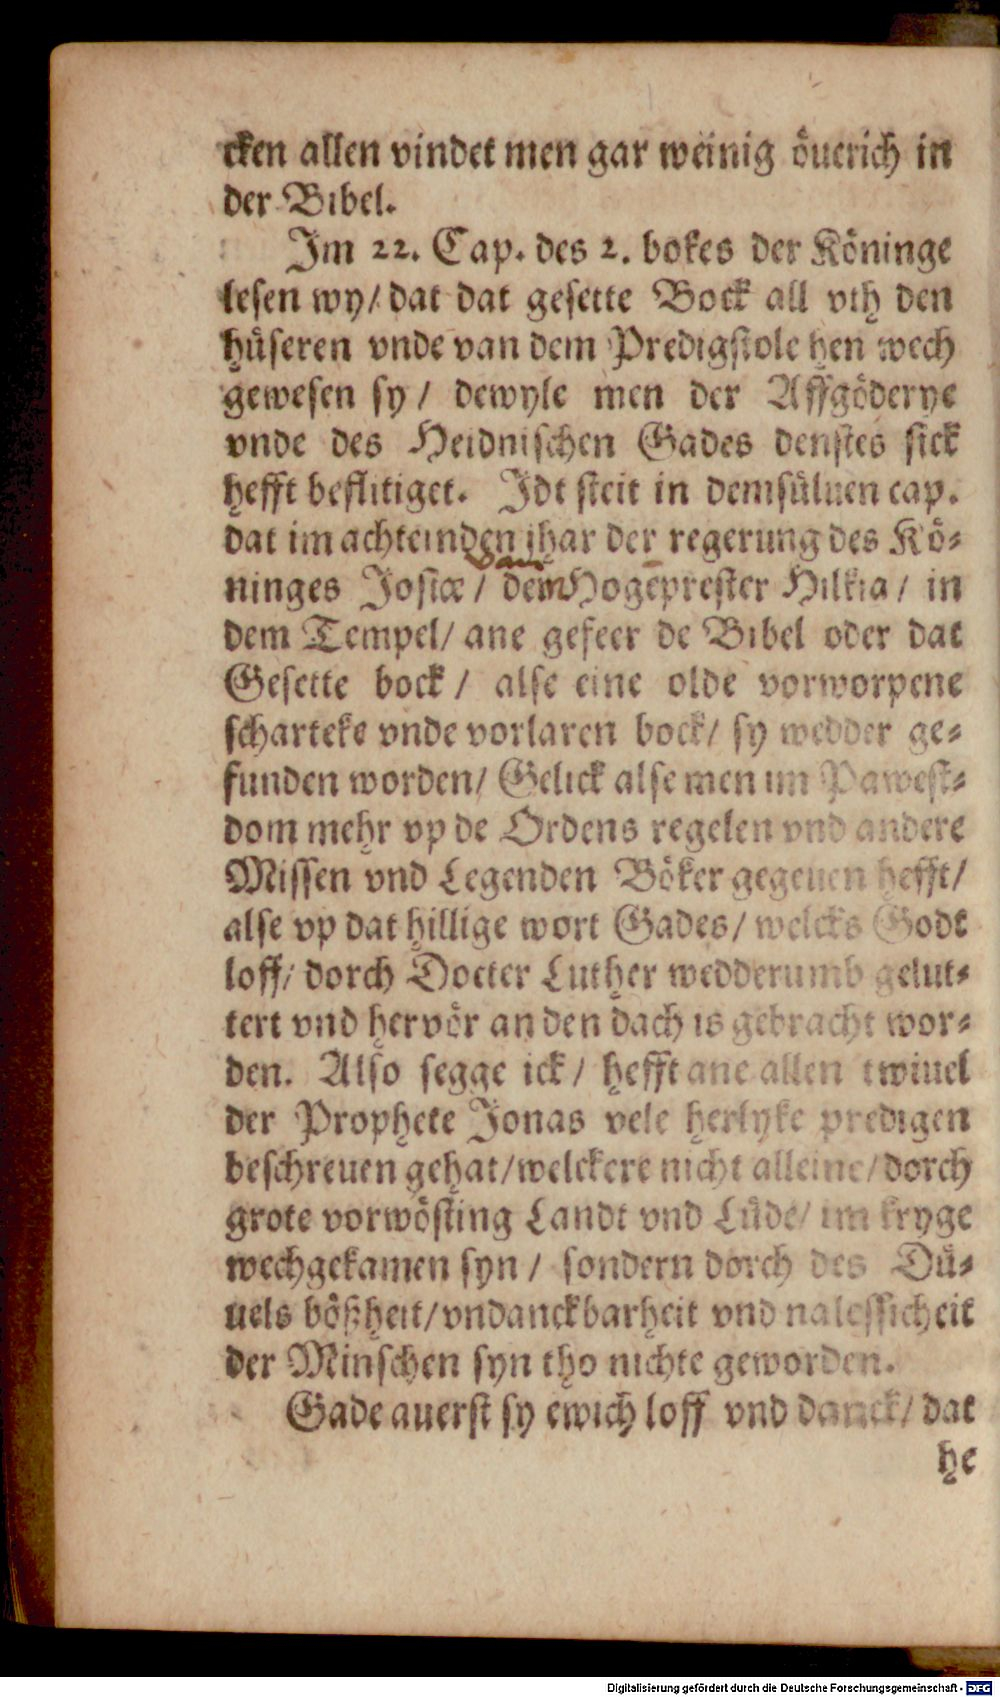 cken allen vindet men gar weinig öuerich in
der Bibel.
Im 22. Cap. des 2. bokes der Köninge
lesen wy/ dat dat gesette Bock all vth den
hüseren vnde van dem Predigstole hen wech
gewesen sy/ dewyle men der Affgöderye
vnde des Heidnischen Gades denstes sick
hefft beflitiget. Idt steit in demsüluen cap.
dat im achteinden jhar der regerung des Kö-
van
ninges Josiæ/ dem Hogeprester Hilkia/ in
dem Tempel/ ane gefeer de Bibel oder dat
Gesette bock/ alse eine olde vorworpene
scharteke vnde vorlaren bock/ sy wedder ge-
funden worden/ Gelick alse men im Pawest-
dom mehr vp de Ordens regelen vnd andere
Missen vnd Legenden Böker gegeuen hefft/
alse vp dat hillige wort Gades/ welcks Godt
loff/ dorch Docter Luther wedderumb gelut-
tert vnd hervör an den dach is gebracht wor-
den. Also segge ick/ hefft ane allen twiuel
der Prophete Jonas vele herlyke predigen
beschreuen gehat/ welckere nicht alleine/ dorch
grote vorwösting Landt vnd Lüde/ im kryge
wechgekamen syn/ sondern dorch des Dü-
uels bößheit/ vndanckbarheit vnd nalessicheit
der Minschen syn tho nichte geworden.
Gade auerst sy ewich loff vnd danck/ dat
he
Digitalisierung gefördert durch die Deutsche Forschungsgemeinschaft - DFG